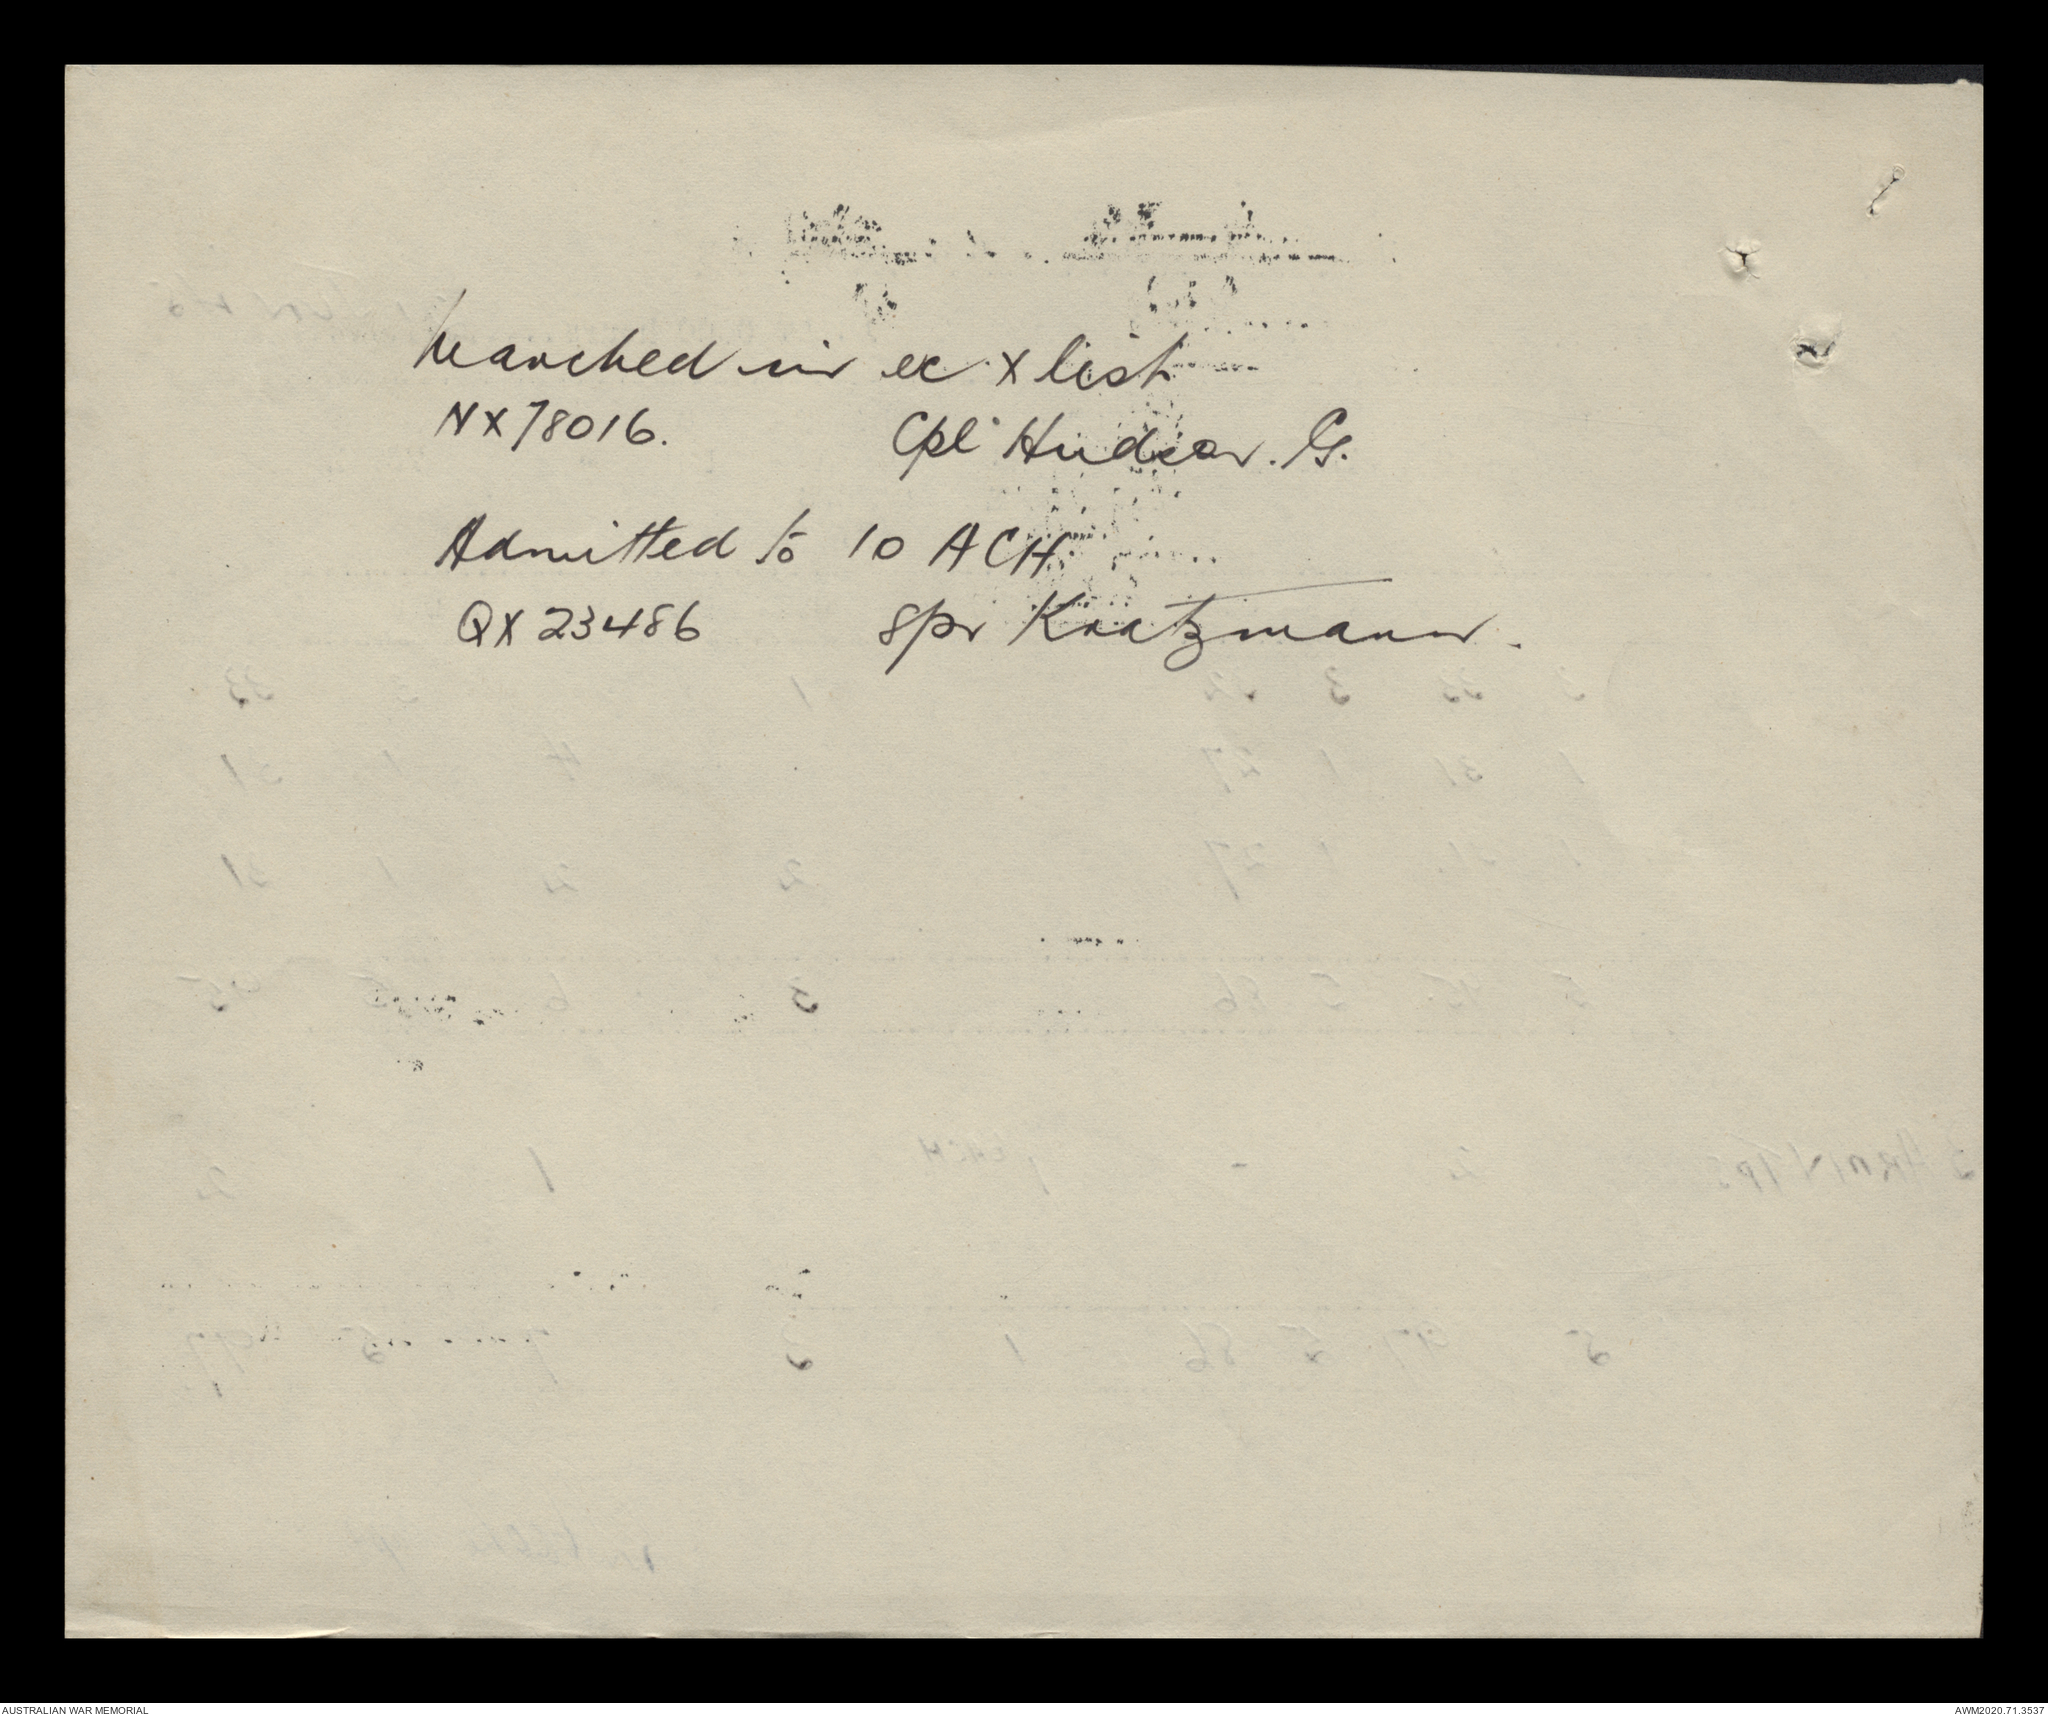 Marched in ex X list
NX78016. Cpl Hudson. G.
Admitted to 10 ACH
QX23486 Spr Kratzmann.
AUSTRALIAN WAR MEMORIAL
AWM2020.71.3537